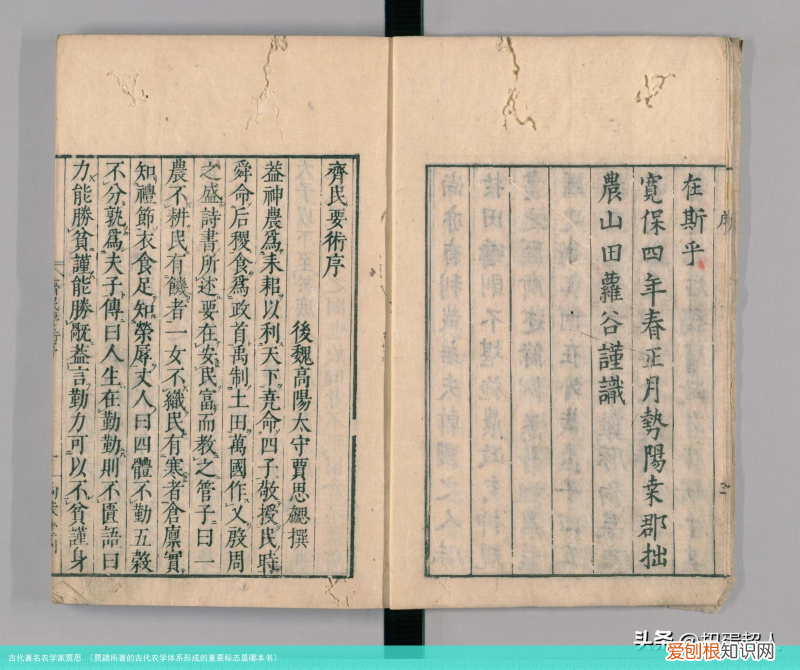 在斯乎
寛保四年春正月勢陽桒郡拙
農山田蘿谷謹識
齊民要術序
後魏高陽太守賈思勰撰
葢神農爲耒耜以利天下堯命四子敬授民時
舜命后稷食爲政首禹制土田萬國作乂殷周
之盛詩書所述要在安民富而教之管子曰一
農不耕民有饑者一女不織民有寒者倉廩實
知禮節衣食足知榮辱丈人曰四體不勤五穀
不分孰爲夫子傳曰人生在勤勤則不匱語曰
力能勝貧謹能勝旤葢言勤力可以不貧謹身
头条 @扭蛋超人
爱创根知识网
古代著名农学家贾思 （贾勰所著的古代农学体系形成的重要标志是哪本书）